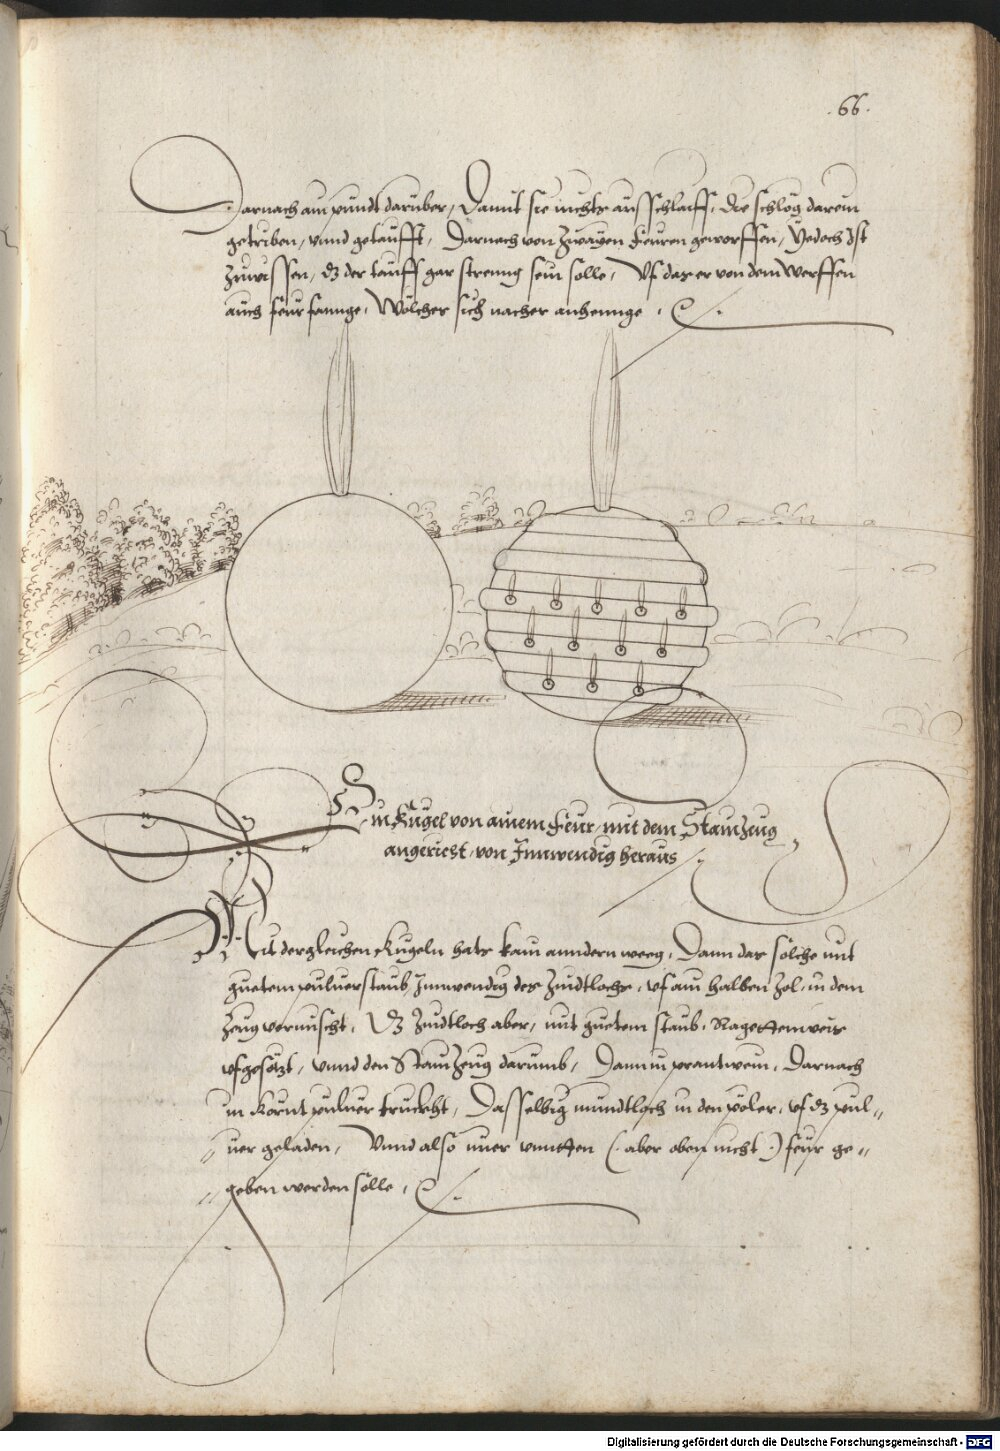 .66.
Darnach ain pundt darüber, Damit sie nichts ausschlaiff, die schlög darein
getriben, vnnd getaufft, Darnach von zwayen feuren geworffen, Yedoch Ist
zuwissen, dz der tauff gar streinng sein solle, Vf das er von dem Werffen
auch feur fannge, Wölcher sich nacher anhennge.
Ein Kugel von ainem Feur, mit dem Stainzeug
angericht, von Innwendig heraus
Mit dergleichen Kugeln hats kain anndern weeg, Dann das sölche mit
guetem puluerstaub Innwendig des Zündtlochs, vf ain halben Zol, in dem
Zeug vermischt, Dz Zündtloch aber, mit guetem staub, Ragettenweis
vfgesötzt, vnnd den Stainzeug darumb, Dann in prantwein, Darnach
in Kornt puluer truckht, Dasselbig mundtloch in den pöler, vf dz pul-
uer geladen, Vnnd also nuer vnntten (aber oben nicht) feur ge-
geben werden sölle.
Digitalisierung gefördert durch die Deutsche Forschungsgemeinschaft - DFG